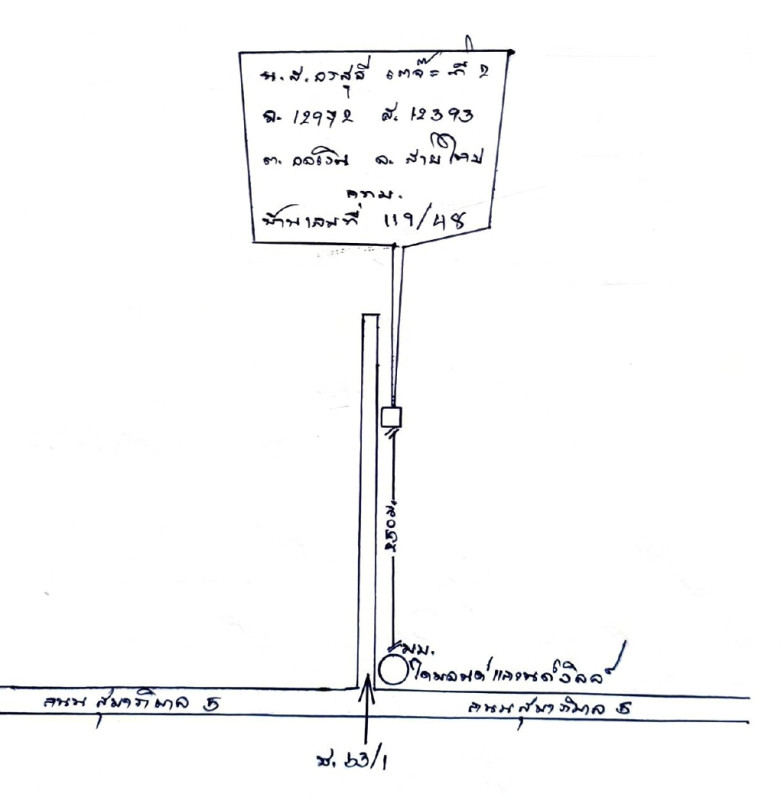 น.ส.อรสุรี เตจ๊ะ ที่ 2
ฉ. 12972 ส. 12393
ต. ออเงิน อ. สายไหม
กทม.
บ้านเลขที่ 119/48
250ม.
มบ.
ไดมอนด์แลนด์วิลล์
ถนน สุขาภิบาล 5
ถนน สุขาภิบาล 5
ซ. 63/1